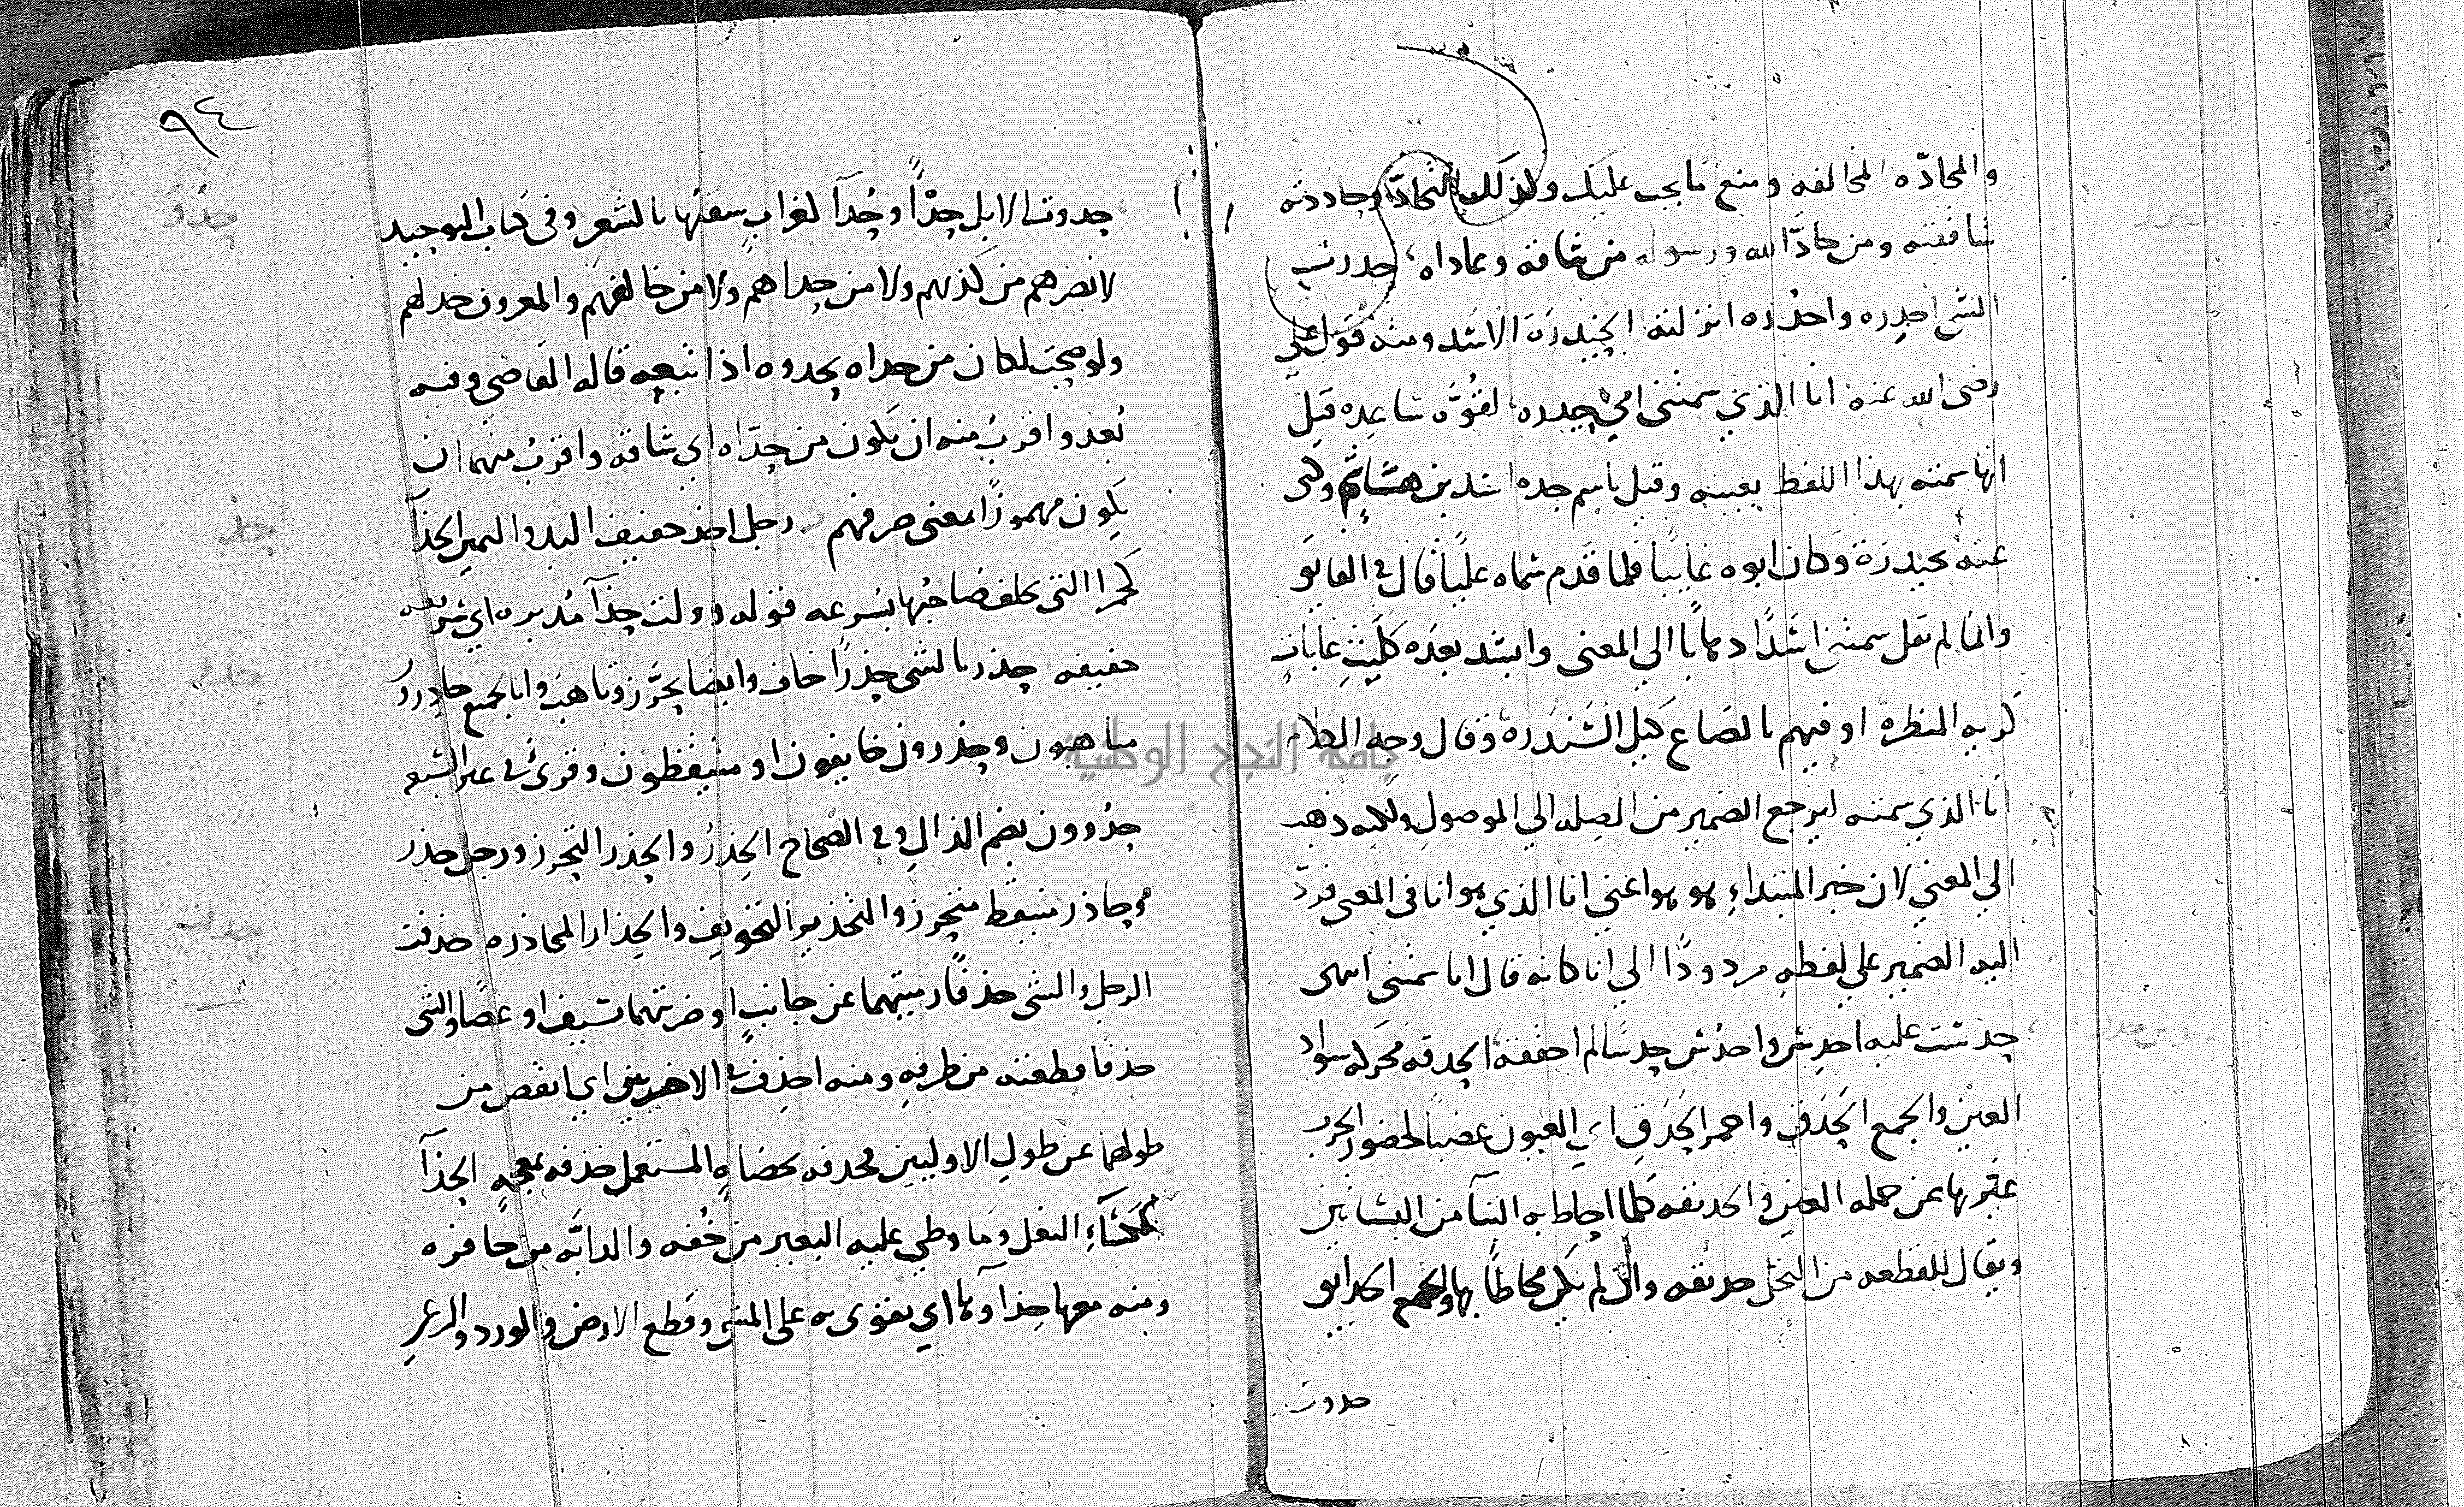 والمحادّه المخالفه ومنع ما يجب عليك وكذلك التحادّ وحاددته
شاققته ومن حادّ الله ورسوله من شاقه وعاداه، حدرت
الشى احدِره واحدُره انزلته الحيدرة الاسد ومنه قول على
رضى الله عنه انا الذي سمتنى امي حيدره، لقُوّة ساعده قيل
انها سمته بهذا اللفظ بعينه وقيل باسم جده اسد بن هشام وكنى
عنه بحيدرة وكان ابوه غايبًا فلما قدم سماه عليًا قال في الفايق
وانما لم يقل سمتنى اسدًا ذهابًا الي المعنى وانشد بعده كليثِ غاباتٍ
كريه المنظره اوفيهم بالصاع كيل السندرة وقال وجه الكلام
انا الذي سمته ليرجع الضمير من الصله الي الموصول ولكنه ذهب
الي المعني لان خبر المبتداءِ هو هو اعني انا الذي هو انا في المعنى فردّ
اليه الضمير علي لفظه مردودًا الي انا كانه قال انا سمتنى امى
حدست عليه احدِس واحدُس حدسًا لم احققه الحدقه محركه سواد
العين والجمع الحَدَق واحمر الحَدَقِ اي العيون غضبًا لحضور الحرب
عبّر بها عن جمله العين والحديقه كلما احاط به البنآ من البساتين
ويقال للقطعه من النخل حديقه وان لم يكن محاطًا بها والجمع الحدايق
حدوت
٩٤
حدوت الابل حدْوًا وحُدآ لغراب سقتها بالشعر وفى كتاب التوحيد
لا يضرهم من كذبهم ولا من حداهم ولا من خالفهم والمعروف خذلهم
ولو صحت لكان من حداه يحدوه اذا تبعه قاله القاضى وفيه
بُعد واقربُ منه ان يكون من حدّاه اي شاقه واقربُ منهما ان
يكون مهموزًا بمعنى صرفهم رجل احذ خفيف اليد واليمين الحذآ
كحمرا التى يحلف صاحبُها بسرعه قوله وولت حذآ مُدبره اي سريعه
خفيفه حذر بالشى حذرًا خاف وايضا تحرّز وتاهب وانا لجميع حاذرون
متاهبون وحذرون خايفون او متيقظون وقرئ في غير السبع
حذُرون بضم الذالِ وفي الصحاح الحِذرُ والحذر التحرز ورجل حذر
وحاذر متيقظ متحرز والتحذير التخويف والحِذار المحاذره حذفت
الرجل والشى حذفًا رميتهما عن جانب او ضربتهما بسيف او عصًا والشى
حذفا قطعته من طرفهِ ومنه احذِف في الاخريين اي انقص من
طولهما عن طول الاوليين فحذفه بحصاه المستعمل خذفه بمعجمه الحذآ
ككسآءِ النعل وما وطي عليه البعير من خُفه والدابّه من حافره
ومنه معها حِذاوها اي تقوى به على المشى وقطع الارض والورد والرعى
حدو
حذ
حذر
حذف